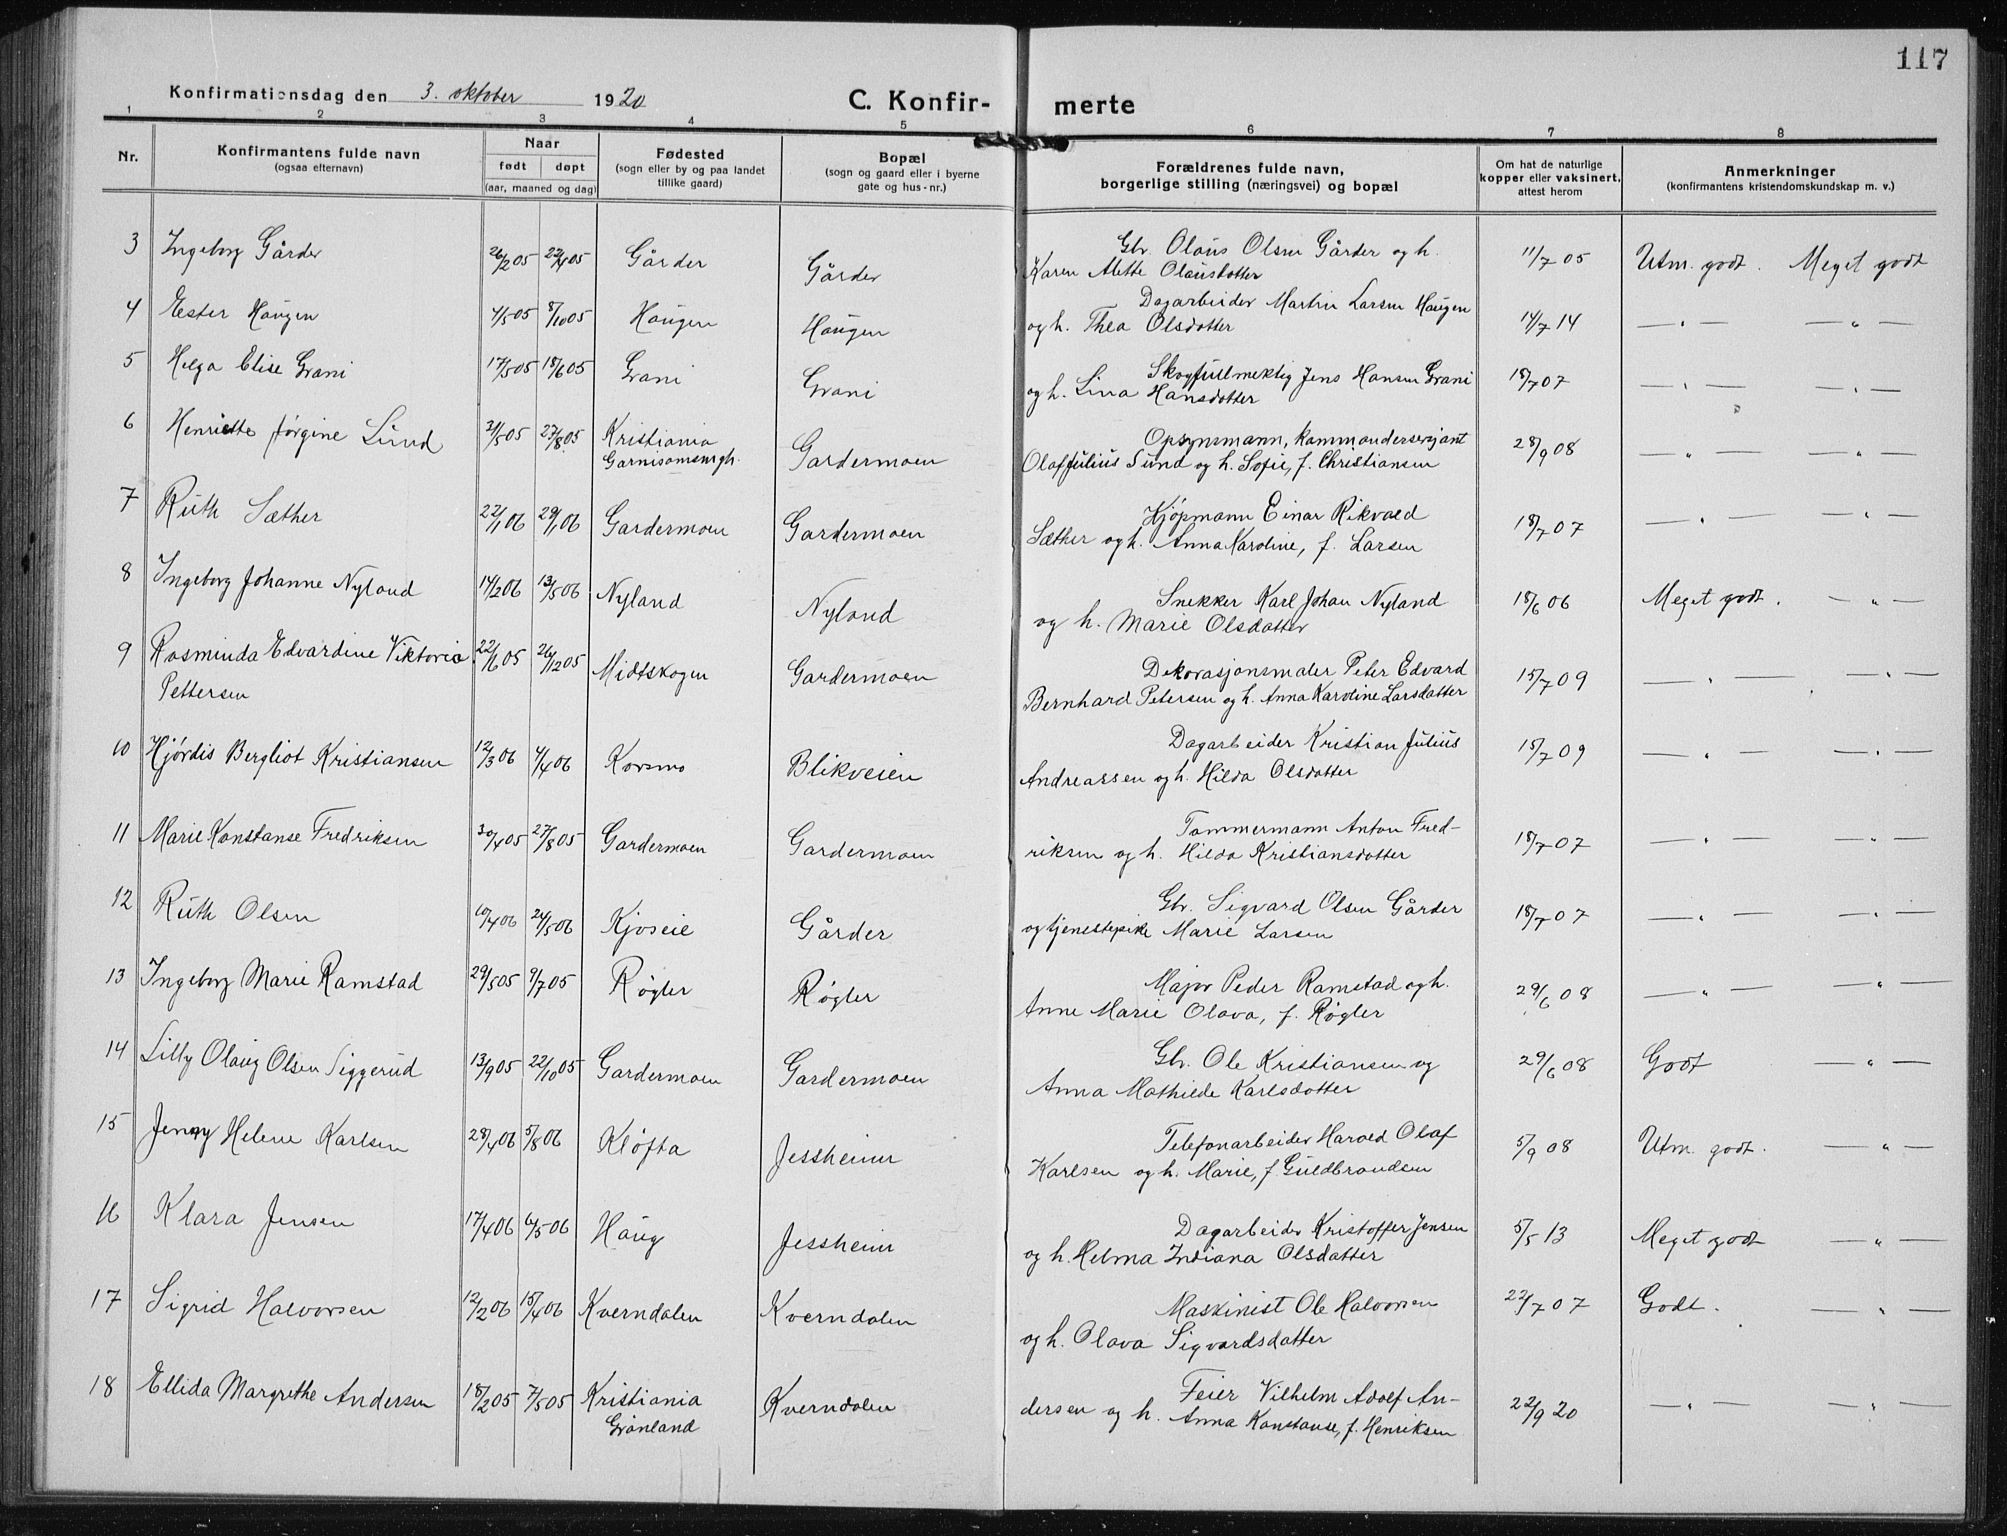 117
Konfirmationsdag den 3. oktober 1920
C. Konfir- merte
1 2 3 4 5 6 7 8
Nr.
Konfirmantens fulde navn
(ogsaa efternavn)
Naar
født døpt
(aar, maaned og dag)
Fødested
(sogn eller by og paa landet
tillike gaard)
Bopæl
(sogn og gaard eller i byerne
gate og hus-nr.)
Forældrenes fulde navn,
borgerlige stilling (næringsvei) og bopæl
Om hat de naturlige
kopper eller vaksinert,
attest herom
Anmerkninger
(konfirmantens kristendomskundskap m. v.)
3 Ingeborg Gårder 26/2 05 22/4 05 Gårder Gårder Gbr. Olaus Olsen Gårder og h. 11/7 05 Utm. godt. Meget godt
Karen Mette Olausdotter
4 Ester Haugen 4/5 05 8/10 05 Haugen Haugen Dagarbeider Martin Larsen Haugen 14/7 14 — " — — " —
og h. Thea Olsdotter
5 Helga Elise Grani 17/5 05 18/6 05 Grani Grani Skogfullmektig Jens Hansen Grani 18/7 07 — " — — " —
og h. Lina Hansdotter
6 Henriette Jørgine Lund 21/5 05 27/8 05 Kristiania Gardermoen Opsynsmann, kommandersersjant 28/9 08 — " — — " —
Garnisonsmgh. Olaf Julius Sund og h. Sofie, f. Christiansen
7 Ruth Sæther 22/1 06 29/1 06 Gardermoen Gardermoen Kjøpmann Einar Rikvald 18/7 07 — " — — " —
Sæther og h. Anna Karoline, f. Larsen
8 Ingeborg Johanne Nyland 14/2 06 13/5 06 Nyland Nyland Snekker Karl Johan Nyland 18/6 06 Meget godt. — " —
og h. Marie Olsdatter
9 Rosminda Edvardine Viktoria 22/6 05 26/12 05 Midtskogen Gardermoen Dekorasjonsmaler Peter Edvard 15/7 09 — " — — " —
Pettersen Bernhard Petersen og h. Anna Karoline Larsdatter
10 Hjørdis Bergliot Kristiansen 12/3 06 4/4 06 Korsmo Blikveien Dagarbeider Kristian Julius 15/7 09 — " — — " —
Andreassen og h. Hilda Olsdotter
11 Marie Konstanse Fredriksen 30/4 05 27/8 05 Gardermoen Gardermoen Tømmermann Anton Fred- 18/7 07 — " — — " —
riksen og h. Hilda Kristiansdotter
12 Ruth Olsen 10/4 06 24/5 06 Kjoseie Gårder Gbr. Sigvard Olsen Gårder 18/7 07 — " — — " —
og tjenestepike Marie Larsen
13 Ingeborg Marie Ramstad 29/5 05 9/7 05 Røgler Røgler Major Peder Ramstad og h. 29/6 08 — " — — " —
Anne Marie Olava, f. Røgler
14 Lilly Olaug Olsen Siggerud 13/9 05 22/10 05 Gardermoen Gardermoen Gbr. Ole Kristiansen og 29/6 08 Godt — " —
Anna Mathilde Karlsdotter
15 Jenny Helene Karlsen 28/4 06 5/8 06 Kløfta Jessheim Telefonarbeider Harald Olaf 5/9 08 Utm. godt. — " —
Karlsen og h. Marie, f. Guldbrandsen
16 Klara Jensen 17/4 06 6/5 06 Haug Jessheim Dagarbeider Kristoffer Jensen 5/5 13 Meget godt — " —
og h. Helma Indiana Olsdatter
17 Sigrid Halvorsen 12/2 06 15/4 06 Kverndalen Kverndalen Maskinist Ole Halvorsen 22/7 07 Godt. — " —
og h. Olava Sigvardsdatter
18 Ellida Margrethe Andersen 18/2 05 7/5 05 Kristiania Kverndalen Feier Vilhelm Adolf An- 22/9 20 — " — — " —
Grønland dersen og h. Anna Konstanse, f. Henriksen